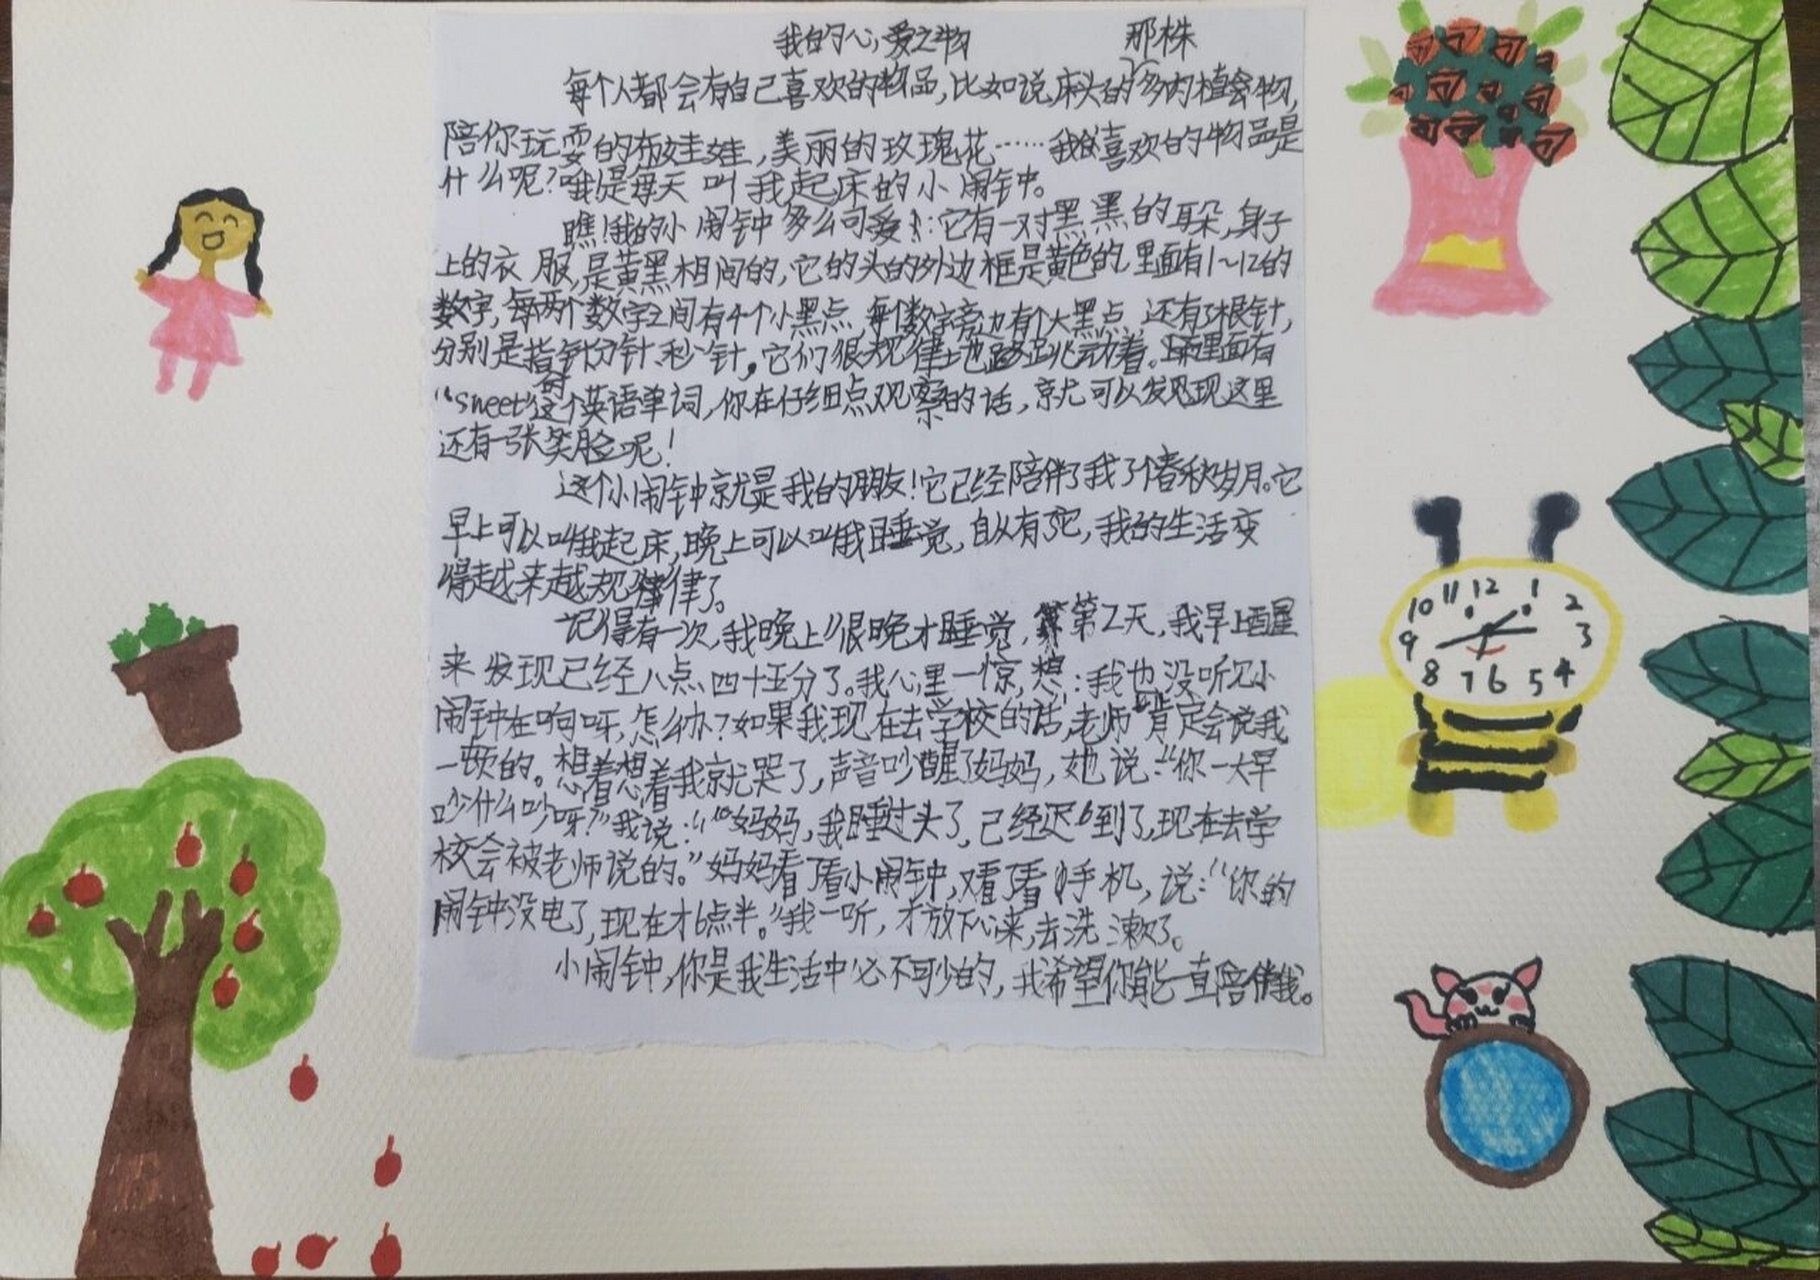 我的心爱之物
那株
每个人都会有自己喜欢的物品,比如说床头的多肉植物,
陪你玩耍的布娃娃,美丽的玫瑰花……我喜欢的物品是
什么呢?哦!是每天叫我起床的小闹钟。
瞧!我的小闹钟多么可爱:它有一对黑黑的耳朵,身子
上的衣服,是黄黑相间的,它的头的外边框是黄色的,里面有1~12的
数字,每两个数字之间有4个小黑点,每个数字旁边有个大黑点,还有3根针,
分别是时针分针、秒针,它们很规律地跳动着。里面有
“sweet”这个英语单词,你在仔细点观察的话,就可以发现这里
还有一张笑脸呢!
这个小闹钟就是我的朋友!它已经陪伴了我了个春秋岁月。它
早上可以叫我起床,晚上可以叫我睡觉,自从有了它,我的生活变
得越来越规律了。
记得有一次,我晚上很晚才睡觉,第2天,我早上醒
来发现已经八点四十五分了。我心里一惊,想:我也没听见小
闹钟在响呀,怎么办?如果我现在去学校的话,老师肯定会说我
一顿的。想着想着我就哭了,声音吵醒了妈妈,她说:“你一大早
吵什么吵呀?”我说:“妈妈,我睡过头了,已经迟到了,现在去学
校会被老师说的。”妈妈看了看小闹钟,又看了看手机,说:“你的
闹钟没电了,现在才6点半。”我一听,才放下心来,去洗漱了。
小闹钟,你是我生活中必不可少的,我希望你能一直陪伴我。
10 11 12 1 2
9 3
8 7 6 5 4